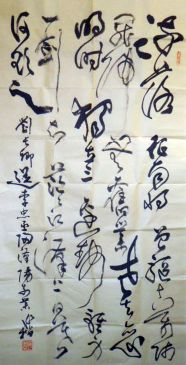 流落征南将曾驱十万师
罢归無舊業老去恋
明时独立三边静轻生
一剑知茫茫江漢上日暮
欲何之
劉長卿送李中丞归漢陽别業